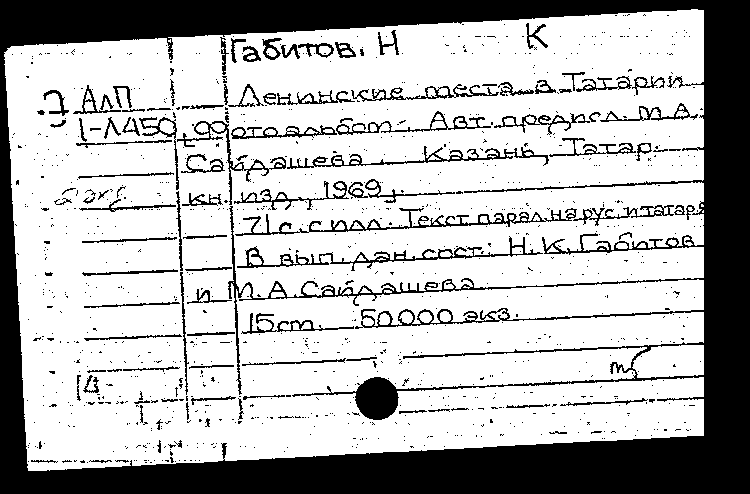 Габитов. Н К
АлП Ленинские места в Татарии
1-Л450 Фотоальбом. Авт. предисл. М.А.
Сайдашева. Казань, Татар.
2 экз кн. изд., 1969.
71 с. с илл. Текст парал. на рус. и татаря
В вып. дан. сост: Н.К. Габитов
и М.А. Сайдашева
15 ст. 50000 экз.